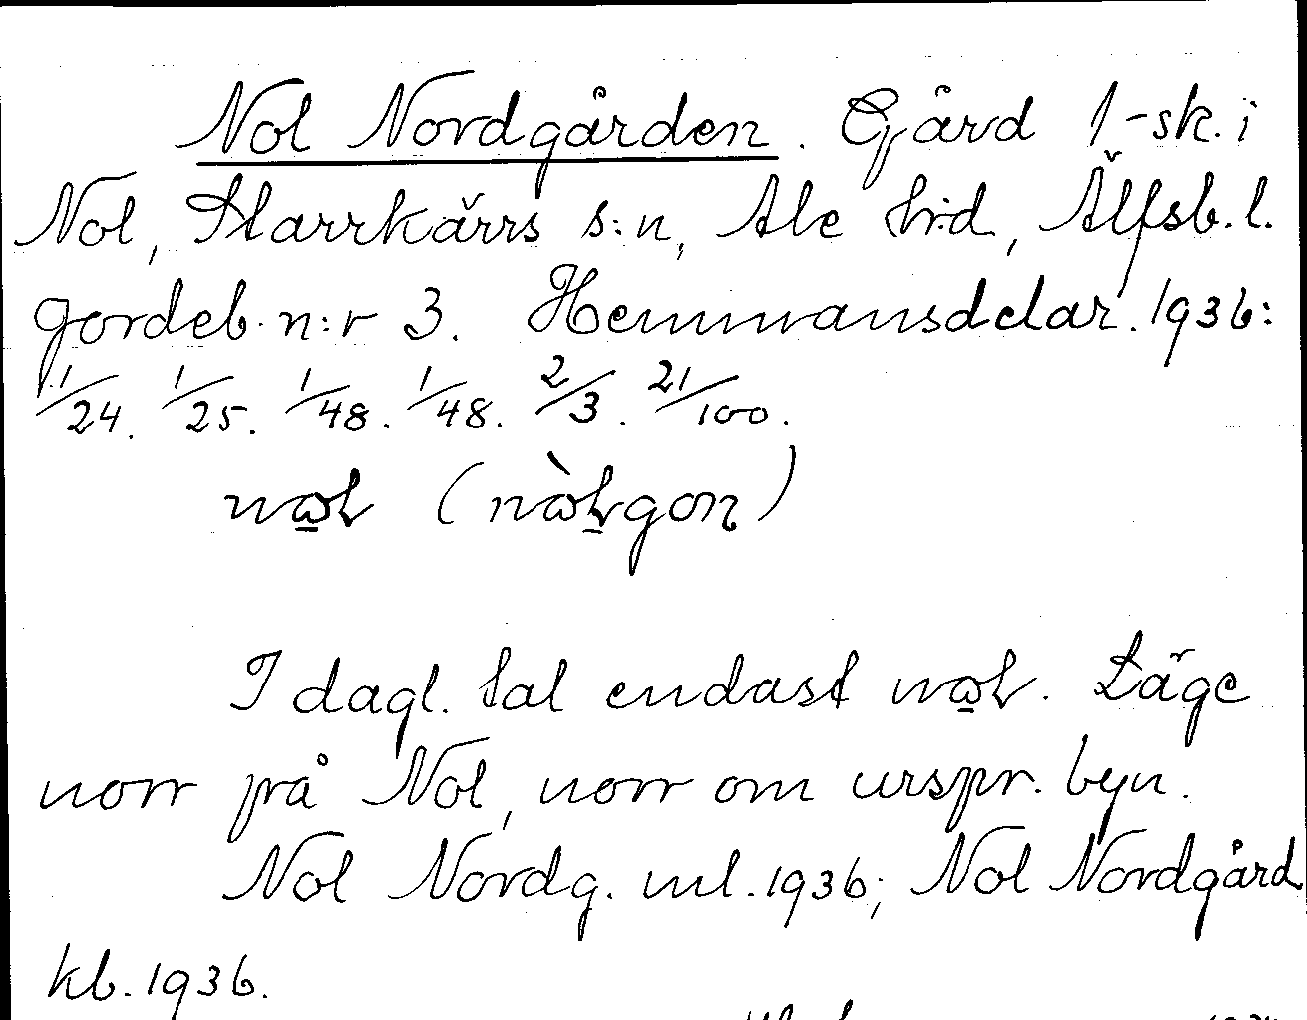 Nol Nordgården. Gård 1-sk. i
Nol, Starrkärrs s:n, Ale hrd, Älfsb. l.
Jordeb. n:r 3. Hemmansdelar. 1936:
1/24. 1/25. 1/48. 1/48. 2/3. 21/100.
I dagl. tal endast Läge
norr på Nol, norr om urspr. byn.
Nol Nordg. ml. 1936; Nol Nordgård
kb. 1936.